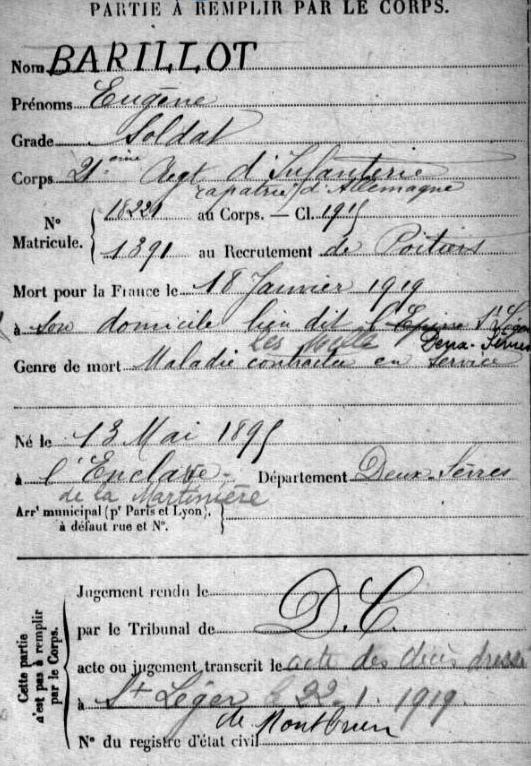 PARTIE À REMPLIR PAR LE CORPS.
Nom BARILLOT
Prénoms Eugène
Grade Soldat
Corps 21ème Regt d'Infanterie
rapatrié d'Allemagne
N° Matricule. { 18221 au Corps. — Cl. 1915
1391 au Recrutement de Poitiers
Mort pour la France le 18 Janvier 1919
à son domicile lieu dit St Léger
Les Deux-Sèvres
Genre de mort Maladie contractée en service
Né le 13 Mai 1895
à l'Enclave Département Deux-Sèvres
de la Martinière
Arrt municipal (pr Paris et Lyon), à défaut rue et N°.
Cette partie n'est pas à remplir par le Corps.
Jugement rendu le
par le Tribunal de D.C.
acte ou jugement transcrit le acte des décès dressé
à St Léger le 22-1.1919.
de Montbrun
N° du registre d'état civil